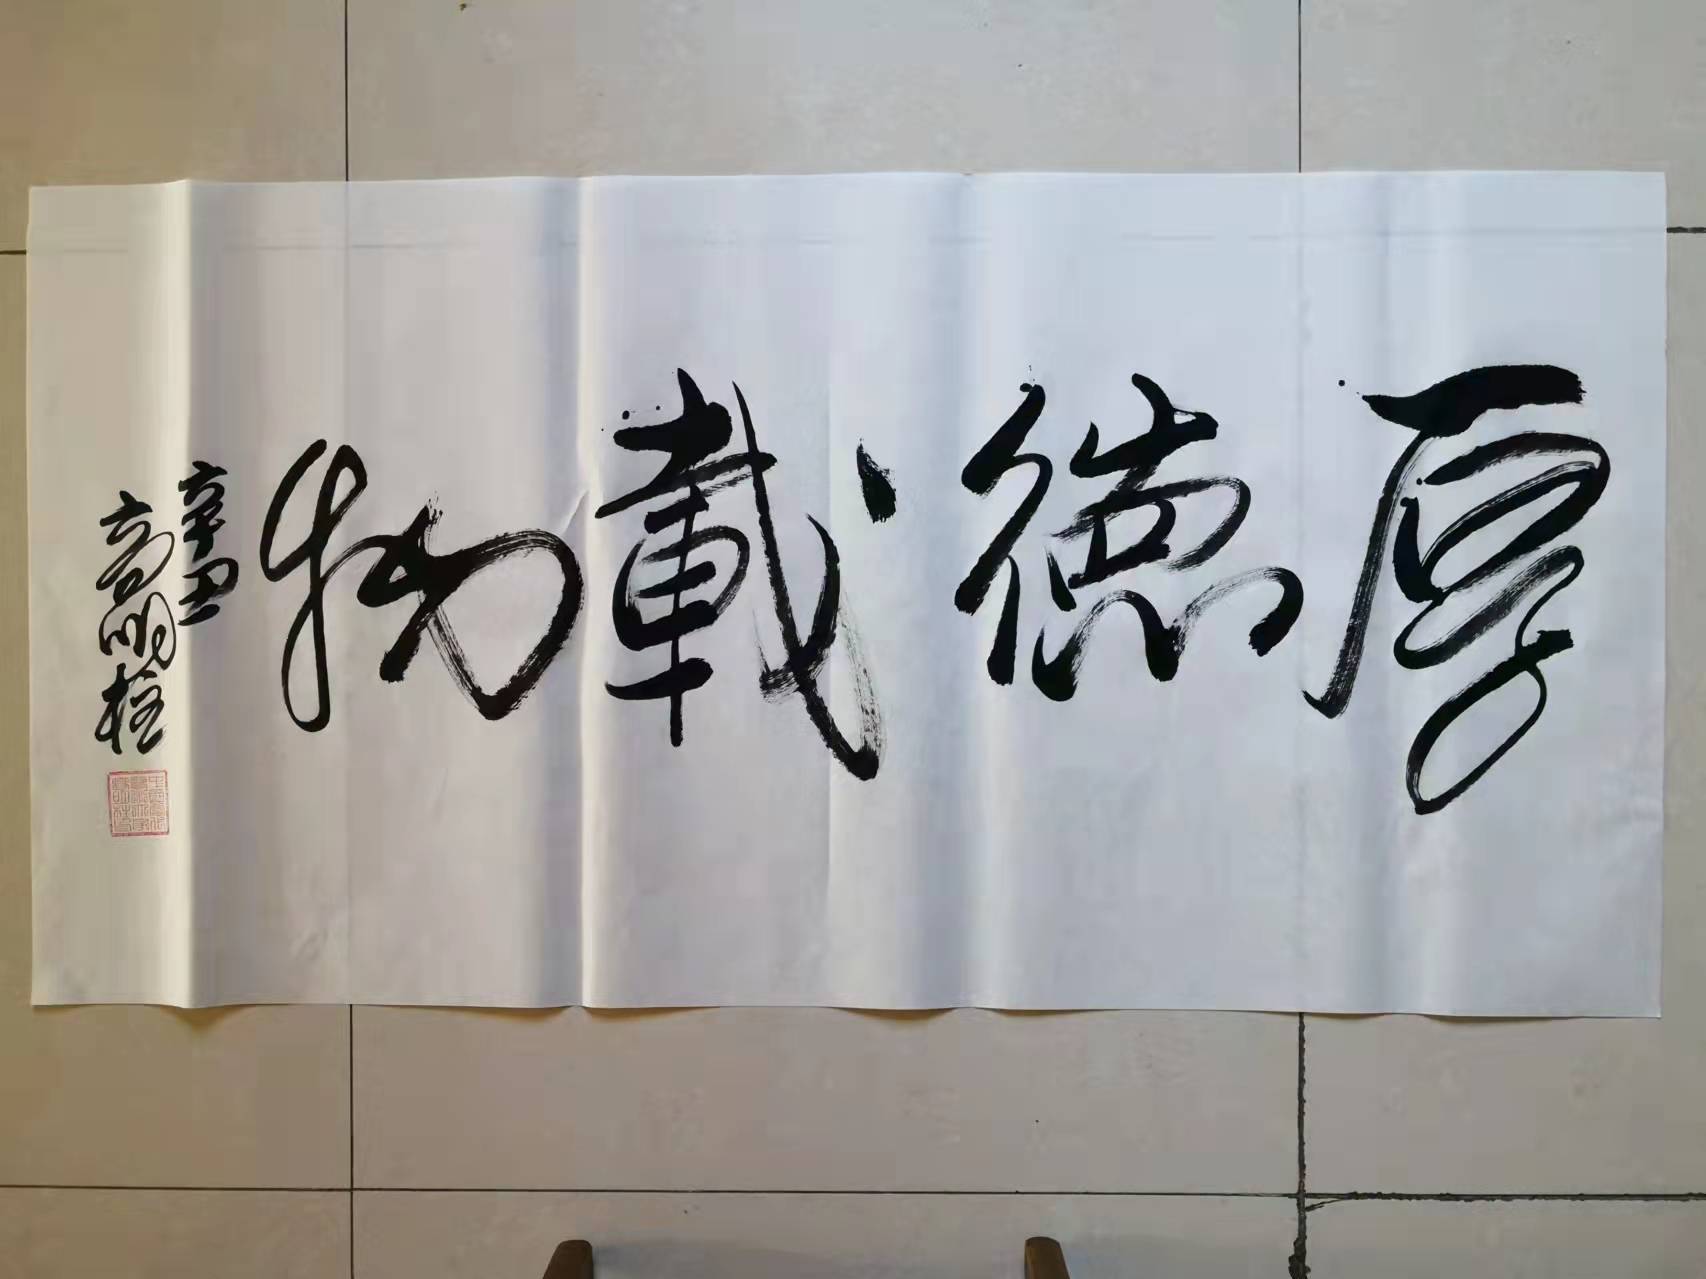 厚德載物
辛丑
高明柱